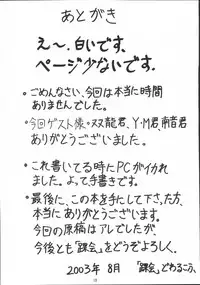 あとがき
え〜、白いです。
ページ少ないです。
・ごめんなさい、今回は本当に時間
ありませんでした。
・今回ゲスト様・双龍君、Y・M君、
ありがとうございました。
・これ書いてる時にPCがイカれ
ました。よって手書きです。
・最後に、この本を手にして下さった方、
本当にありがとうございます。
今回の原稿はアレでしたが、
今後とも「課会」をどうぞよろしく。
2003年 8月 「課会」